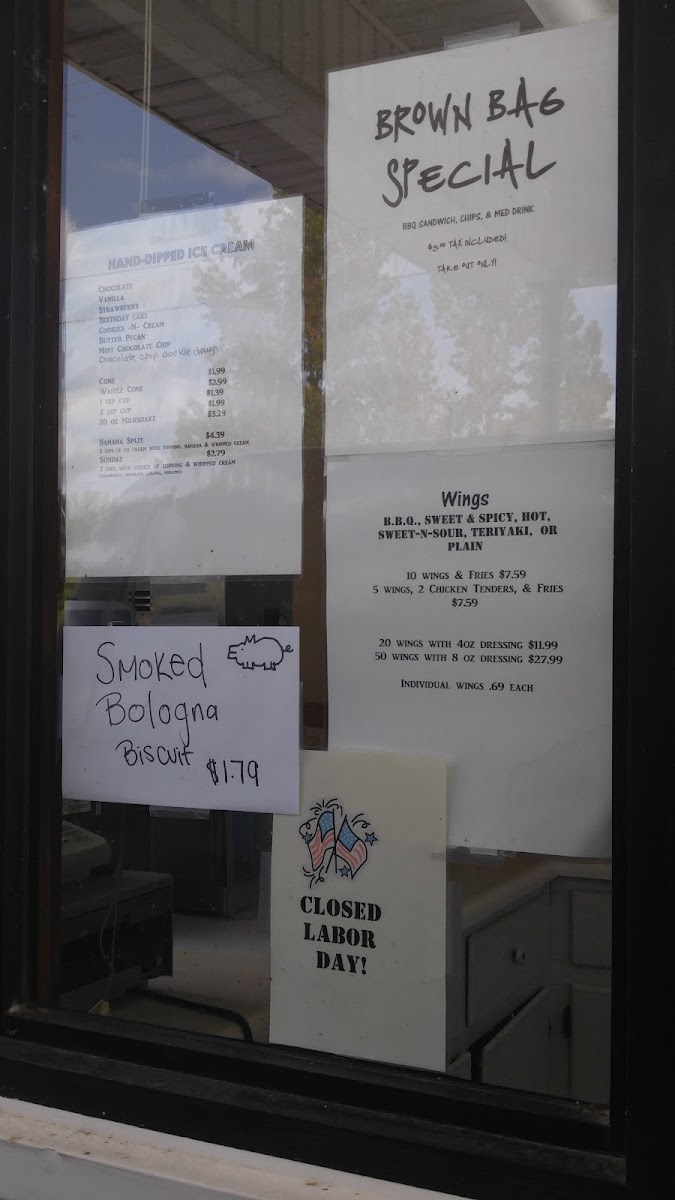 BROWN BAG
SPECIAL
BBQ SANDWICH, CHIPS, & MED DRINK
$5.00 TAX INCLUDED!
TAKE OUT ONLY!
HAND-DIPPED ICE CREAM
CHOCOLATE
VANILLA
STRAWBERRY
BIRTHDAY CAKE
COOKIES -N- CREAM
BUTTER PECAN
MINT CHOCOLATE CHIP
Chocolate chip cookie dough
CONE $1.99
WAFFLE CONE $2.99
1 DIP CUP $1.39
2 DIP CUP $1.99
20 OZ MILKSHAKE $3.29
BANANA SPLIT $4.39
3 DIPS OF ICE CREAM WITH TOPPING, BANANA & WHIPPED CREAM
SUNDAY $2.79
2 DIPS WITH CHOICE OF TOPPING & WHIPPED CREAM
Wings
B.B.Q., SWEET & SPICY, HOT,
SWEET-N-SOUR, TERIYAKI, OR
PLAIN
10 WINGS & FRIES $7.59
5 WINGS, 2 CHICKEN TENDERS, & FRIES
$7.59
20 WINGS WITH 4OZ DRESSING $11.99
50 WINGS WITH 8 OZ DRESSING $27.99
INDIVIDUAL WINGS .69 EACH
Smoked
Bologna
Biscuit $1.79
CLOSED
LABOR
DAY!